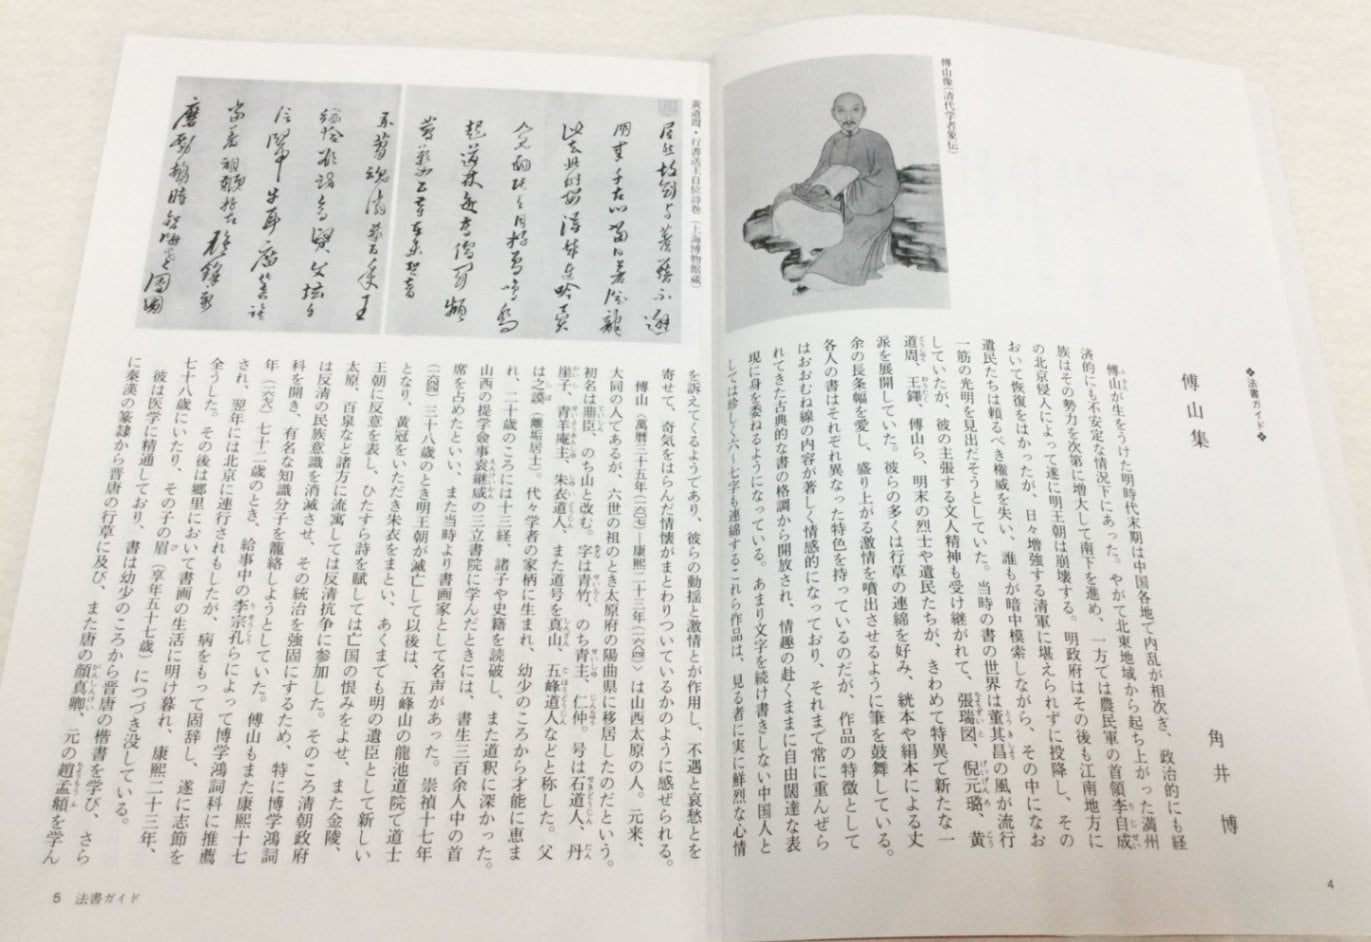 ❖法書ガイド❖
傅山集
角井博
傅山が生をうけた明時代末期は中国各地で内乱が相次ぎ、政治的にも経
済的にも不安定な情況下にあった。やがて北東地域から起ち上がった満州
族はその勢力を次第に増大して南下を進め、一方では農民軍の首領李自成
の北京侵入によって遂に明王朝は崩壊する。明政府はその後も江南地方に
おいて恢復をはかったが、日々増強する清軍に堪えられずに投降し、その
遺民たちは頼るべき権威を失い、誰もが暗中模索しながら、その中になお
一筋の光明を見出だそうとしていた。当時の書の世界は董其昌の風が流行
していたが、彼の主張する文人精神も受け継がれて、張瑞図、倪元璐、黄
道周、王鐸、傅山ら、明末の烈士や遺民たちが、きわめて特異で新たな一
派を展開していた。彼らの多くは行草の連綿を好み、絖本や絹本による丈
余の長条幅を愛し、盛り上がる激情を噴出させるように筆を鼓舞している。
各人の書はそれぞれ異なった特色を持っているのだが、作品の特徴として
はおおむね線の内容が著しく情感的になっており、それまで常に重んぜら
れてきた古典的な書の格調から開放され、情趣の赴くままに自由闊達な表
現に身を委ねるようになっている。あまり文字を続け書きしない中国人と
しては珍しく六〜七字も連綿するこれら作品は、見る者に実に鮮烈な心情
傅山像（清代学者象伝）
4
黄道周・行書送王自位詩巻（上海博物館蔵）
を訴えてくるようであり、彼らの動揺と激情とが作用し、不遇と哀愁とを
寄せて、奇気をはらんだ情懐がまとわりついているかのように感ぜられる。
傅山〈万暦三十五年（一六〇七）―康熙二十三年（一六八四）〉は山西太原の人。元来、
大同の人であるが、六世の祖のとき太原府の陽曲県に移居したのだという。
初名は鼎臣、のち山と改む。字は青竹、のち青主、仁仲。号は石道人、丹
崖子、青羊庵主、朱衣道人、また道号を真山、五峰道人などと称した。父
は之謨（離垢居士）。代々学者の家柄に生まれ、幼少のころから才能に恵ま
れ、二十歳のころには十三経、諸子や史籍を読破し、また道釈に深かった。
山西の提学僉事袁継咸の三立書院に学んだときには、書生三百余人中の首
席を占めたといい、また当時より書画家として名声があった。崇禎十七年
（一六四四）三十八歳のとき明王朝が滅亡して以後は、五峰山の龍池道院で道士
となり、黄冠をいただき朱衣をまとい、あくまでも明の遺臣として新しい
王朝に反意を表し、ひたすら詩を賦しては亡国の恨みをよせ、また金陵、
太原、百泉など諸方に流寓しては反清抗争に参加した。そのころ清朝政府
は反清の民族意識を消滅させ、その統治を強固にするため、特に博学鴻詞
科を開き、有名な知識分子を籠絡しようとしていた。傅山もまた康熙十七
年（一六七八）七十二歳のとき、給事中の李宗孔らによって博学鴻詞科に推薦
され、翌年には北京に連行されもしたが、病をもって固辞し、遂に志節を
全うした。その後は郷里において書画の生活に明け暮れ、康熙二十三年、
七十八歳にいたり、その子の眉（享年五十七歳）につづき没している。
彼は医学に精通しており、書は幼少のころから晋唐の楷書を学び、さら
に秦漢の篆隷から晋唐の行草に及び、また唐の顔真卿、元の趙孟頫を学ん
5 法書ガイド